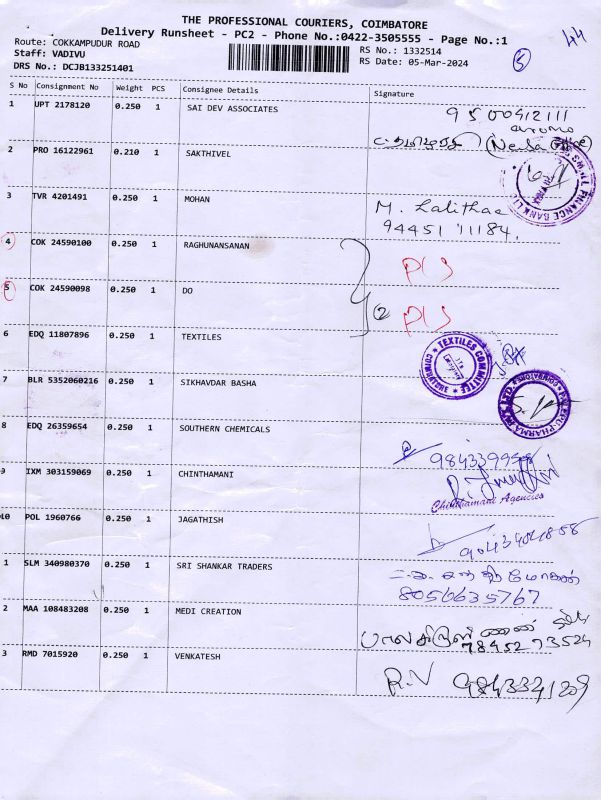 THE PROFESSIONAL COURIERS, COIMBATORE
Delivery Runsheet - PC2 - Phone No.:0422-3505555 - Page No.:1
44
Route: COKKAMPUDUR ROAD
RS No.: 1332514
5
Staff: VADIVU
RS Date: 05-Mar-2024
DRS No.: DCJB133251401
S No Consignment No Weight PCS Consignee Details Signature
1 UPT 2178120 0.250 1 SAI DEV ASSOCIATES 9500412111
2 PRO 16122961 0.210 1 SAKTHIVEL
3 TVR 4201491 0.250 1 MOHAN M. Lalithaa
94451 11184.
4 COK 24590100 0.250 1 RAGHUNANSANAN
5 COK 24590098 0.250 1 DO
2
6 EDQ 11807896 0.250 1 TEXTILES TEXTILES COMMITTEE COIMBATORE
7 BLR 5352060216 0.250 1 SIKHAVDAR BASHA
8 EDQ 26359654 0.250 1 SOUTHERN CHEMICALS
9 IXM 303159069 0.250 1 CHINTHAMANI
Chinthamani Agencies
10 POL 1960766 0.250 1 JAGATHISH
1 SLM 340980370 0.250 1 SRI SHANKAR TRADERS
8056635767
2 MAA 108483208 0.250 1 MEDI CREATION
78452 73524
3 RMD 7015920 0.250 1 VENKATESH R.V 9843341209